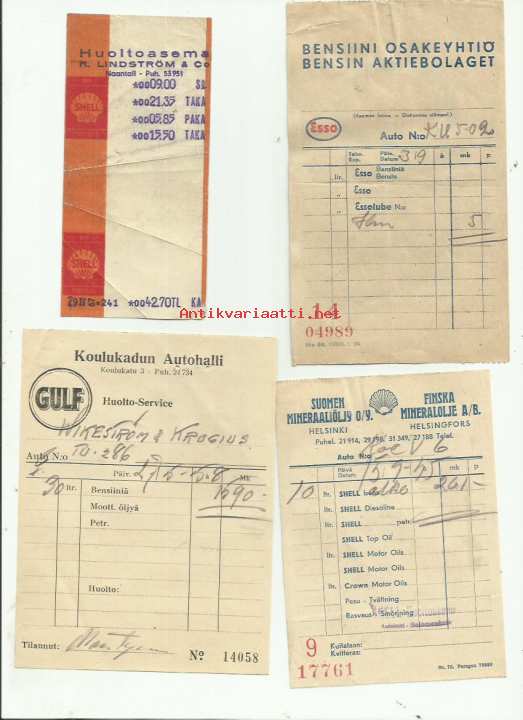 Huoltoasema
R. LINDSTRÖM & Co
Naantali - Puh. 53951
*0009.00 SL
*0021.35 TAKA
*0005.85 PAKA
*0015.50 TAKA
SHELL
SHELL
241 *0042.70TL KA
BENSIINI OSAKEYHTIÖ
BENSIN AKTIEBOLAGET
Esso
Auto N:o KU 502
Päiv. Datum 3/9 à mk p
ltr. Esso Bensiiniä Bensin
" Esso
" Essolube N:o
5
14
04989
Antikvariaatti.net
Koulukadun Autohalli
Koulukatu 3 - Puh. 24734
GULF
Huolto-Service
WIKESTRÖM & KROGIUS
Auto N:o TU-286
Päiv. Mk
30 ltr. Bensiiniä 1690-
Moott. öljyä
Petr.
Huolto:
Tilannut:
Nº 14058
SUOMEN MINERAALIÖLJY O/Y. HELSINKI
FINSKA MINERALOLJE A/B. HELSINGFORS
Auto N:o
Päivä Datum à mk p
10 ltr. SHELL 261-
" SHELL Dieseline
" SHELL petr.
" SHELL Top Oil
" SHELL Motor Oils
" SHELL Motor Oils
ltr. Crown Motor Oils
Pesu - Tvättning
Rasvaus - Smörjning
9
17761
Kuitataan:
Kvitteras: